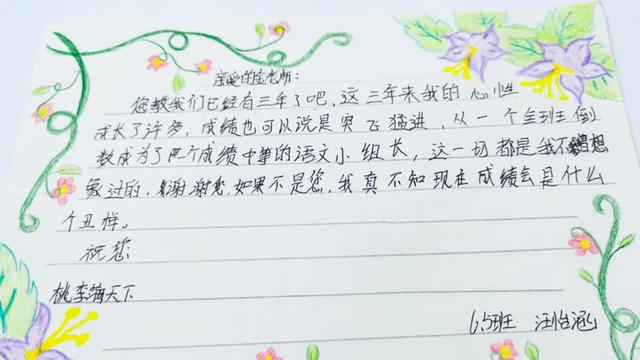 亲爱的金老师：
您教我们已经有三年了吧，这三年来我的心性
成长了许多，成绩也可以说是突飞猛进，从一个全班倒
数成为了两个成绩中等的语文小组长，这一切都是我不曾想
象过的，谢谢您，如果不是您，我真不知现在成绩会是什么
个丑样。
祝您
桃李满天下
6.5班 汪怡涵